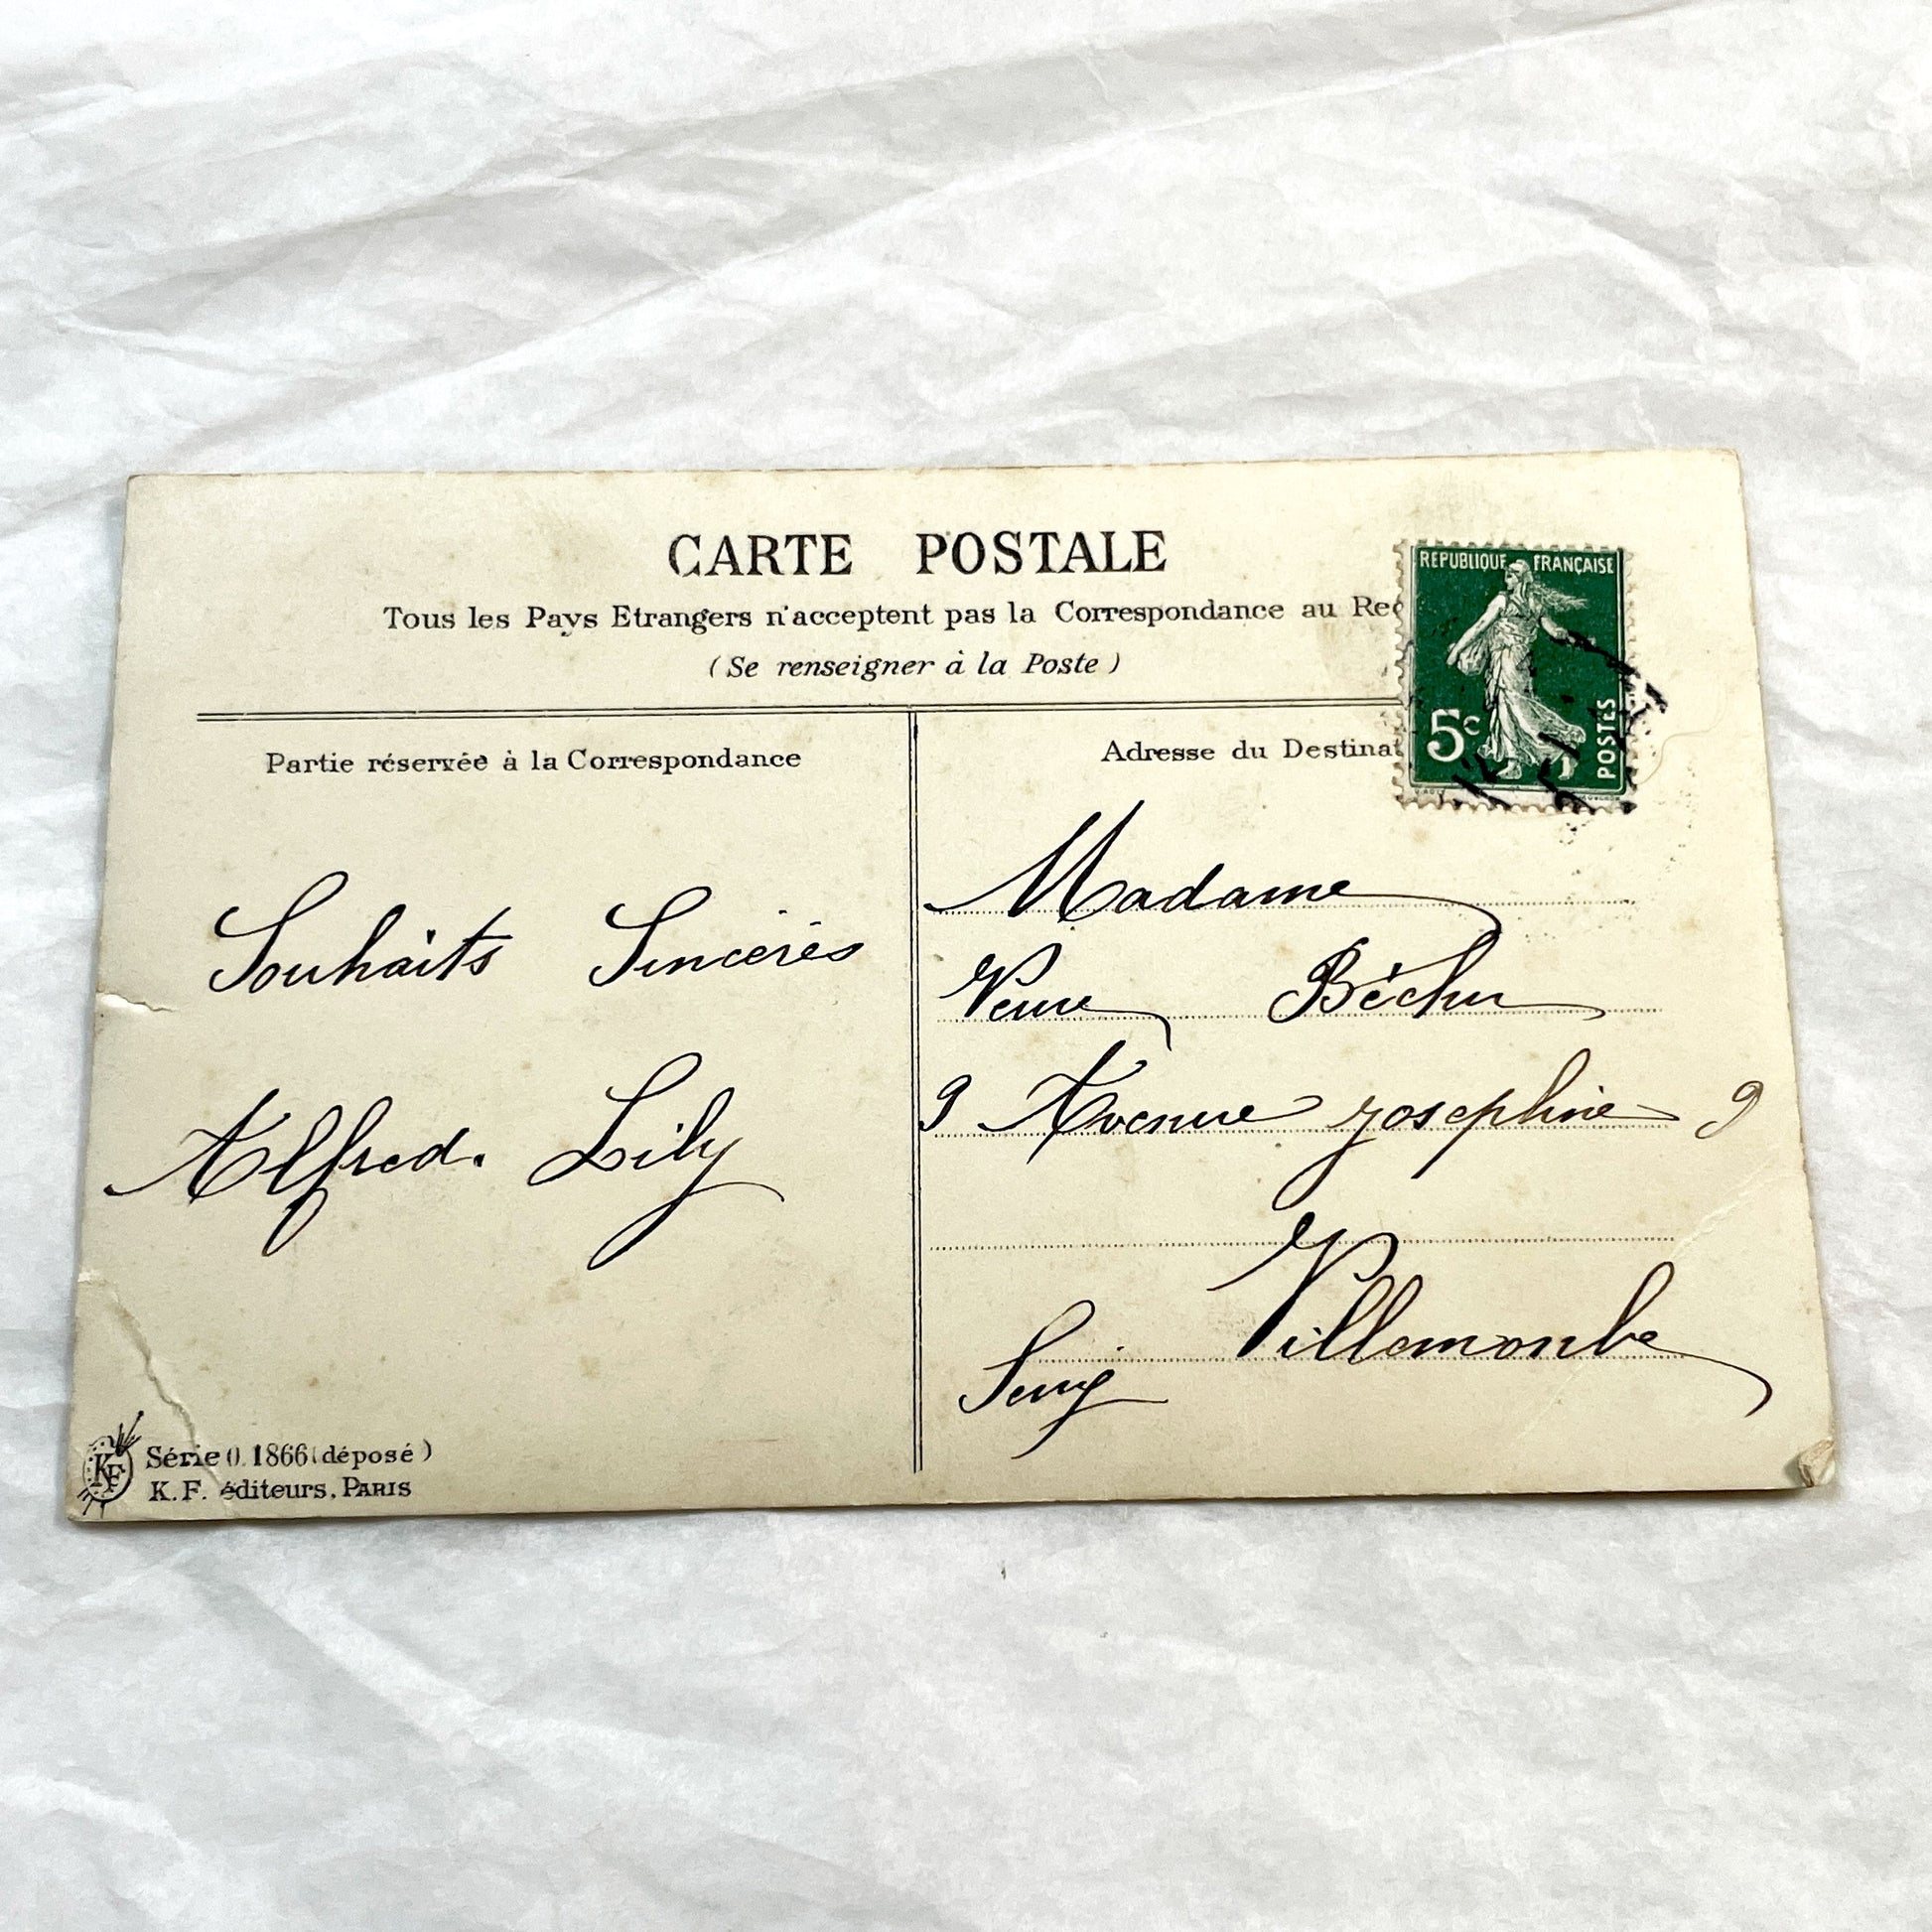 CARTE POSTALE
Tous les Pays Etrangers n'acceptent pas la Correspondance au Rec
(Se renseigner à la Poste)
REPUBLIQUE FRANÇAISE
5c
POSTES
Partie réservée à la Correspondance
Souhaits Sincères
Alfred. Lily
Adresse du Destinat
Madame
Veuve Béchu
9 Avenue josephine 9
Villemonble
KF
Série 0.1866 (déposé)
K.F. éditeurs, PARIS